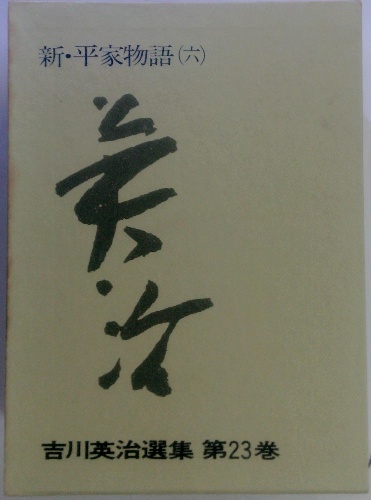 新・平家物語(六)
英治
吉川英治選集 第23巻